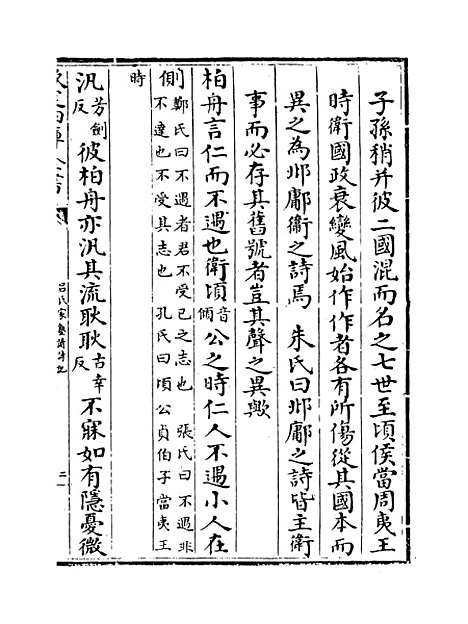 子孫稍并彼二國混而名之七世至頃侯當周夷王
時衛國政衰變風始作作者各有所傷從其國本而
異之為邶鄘衛之詩焉　朱氏曰邶鄘之詩皆主衛
事而必存其舊號者豈其聲之異歟
柏舟言仁而不遇也衛頃音傾公之時仁人不遇小人在
側鄭氏曰不遇者君不受已之志也　張氏曰不遇非
不達也不受其志也　孔氏曰頃公貞伯子當夷王
時
汎芳劍反彼柏舟亦汎其流耿耿古幸反不寐如有隱憂微
呂氏家塾讀詩記